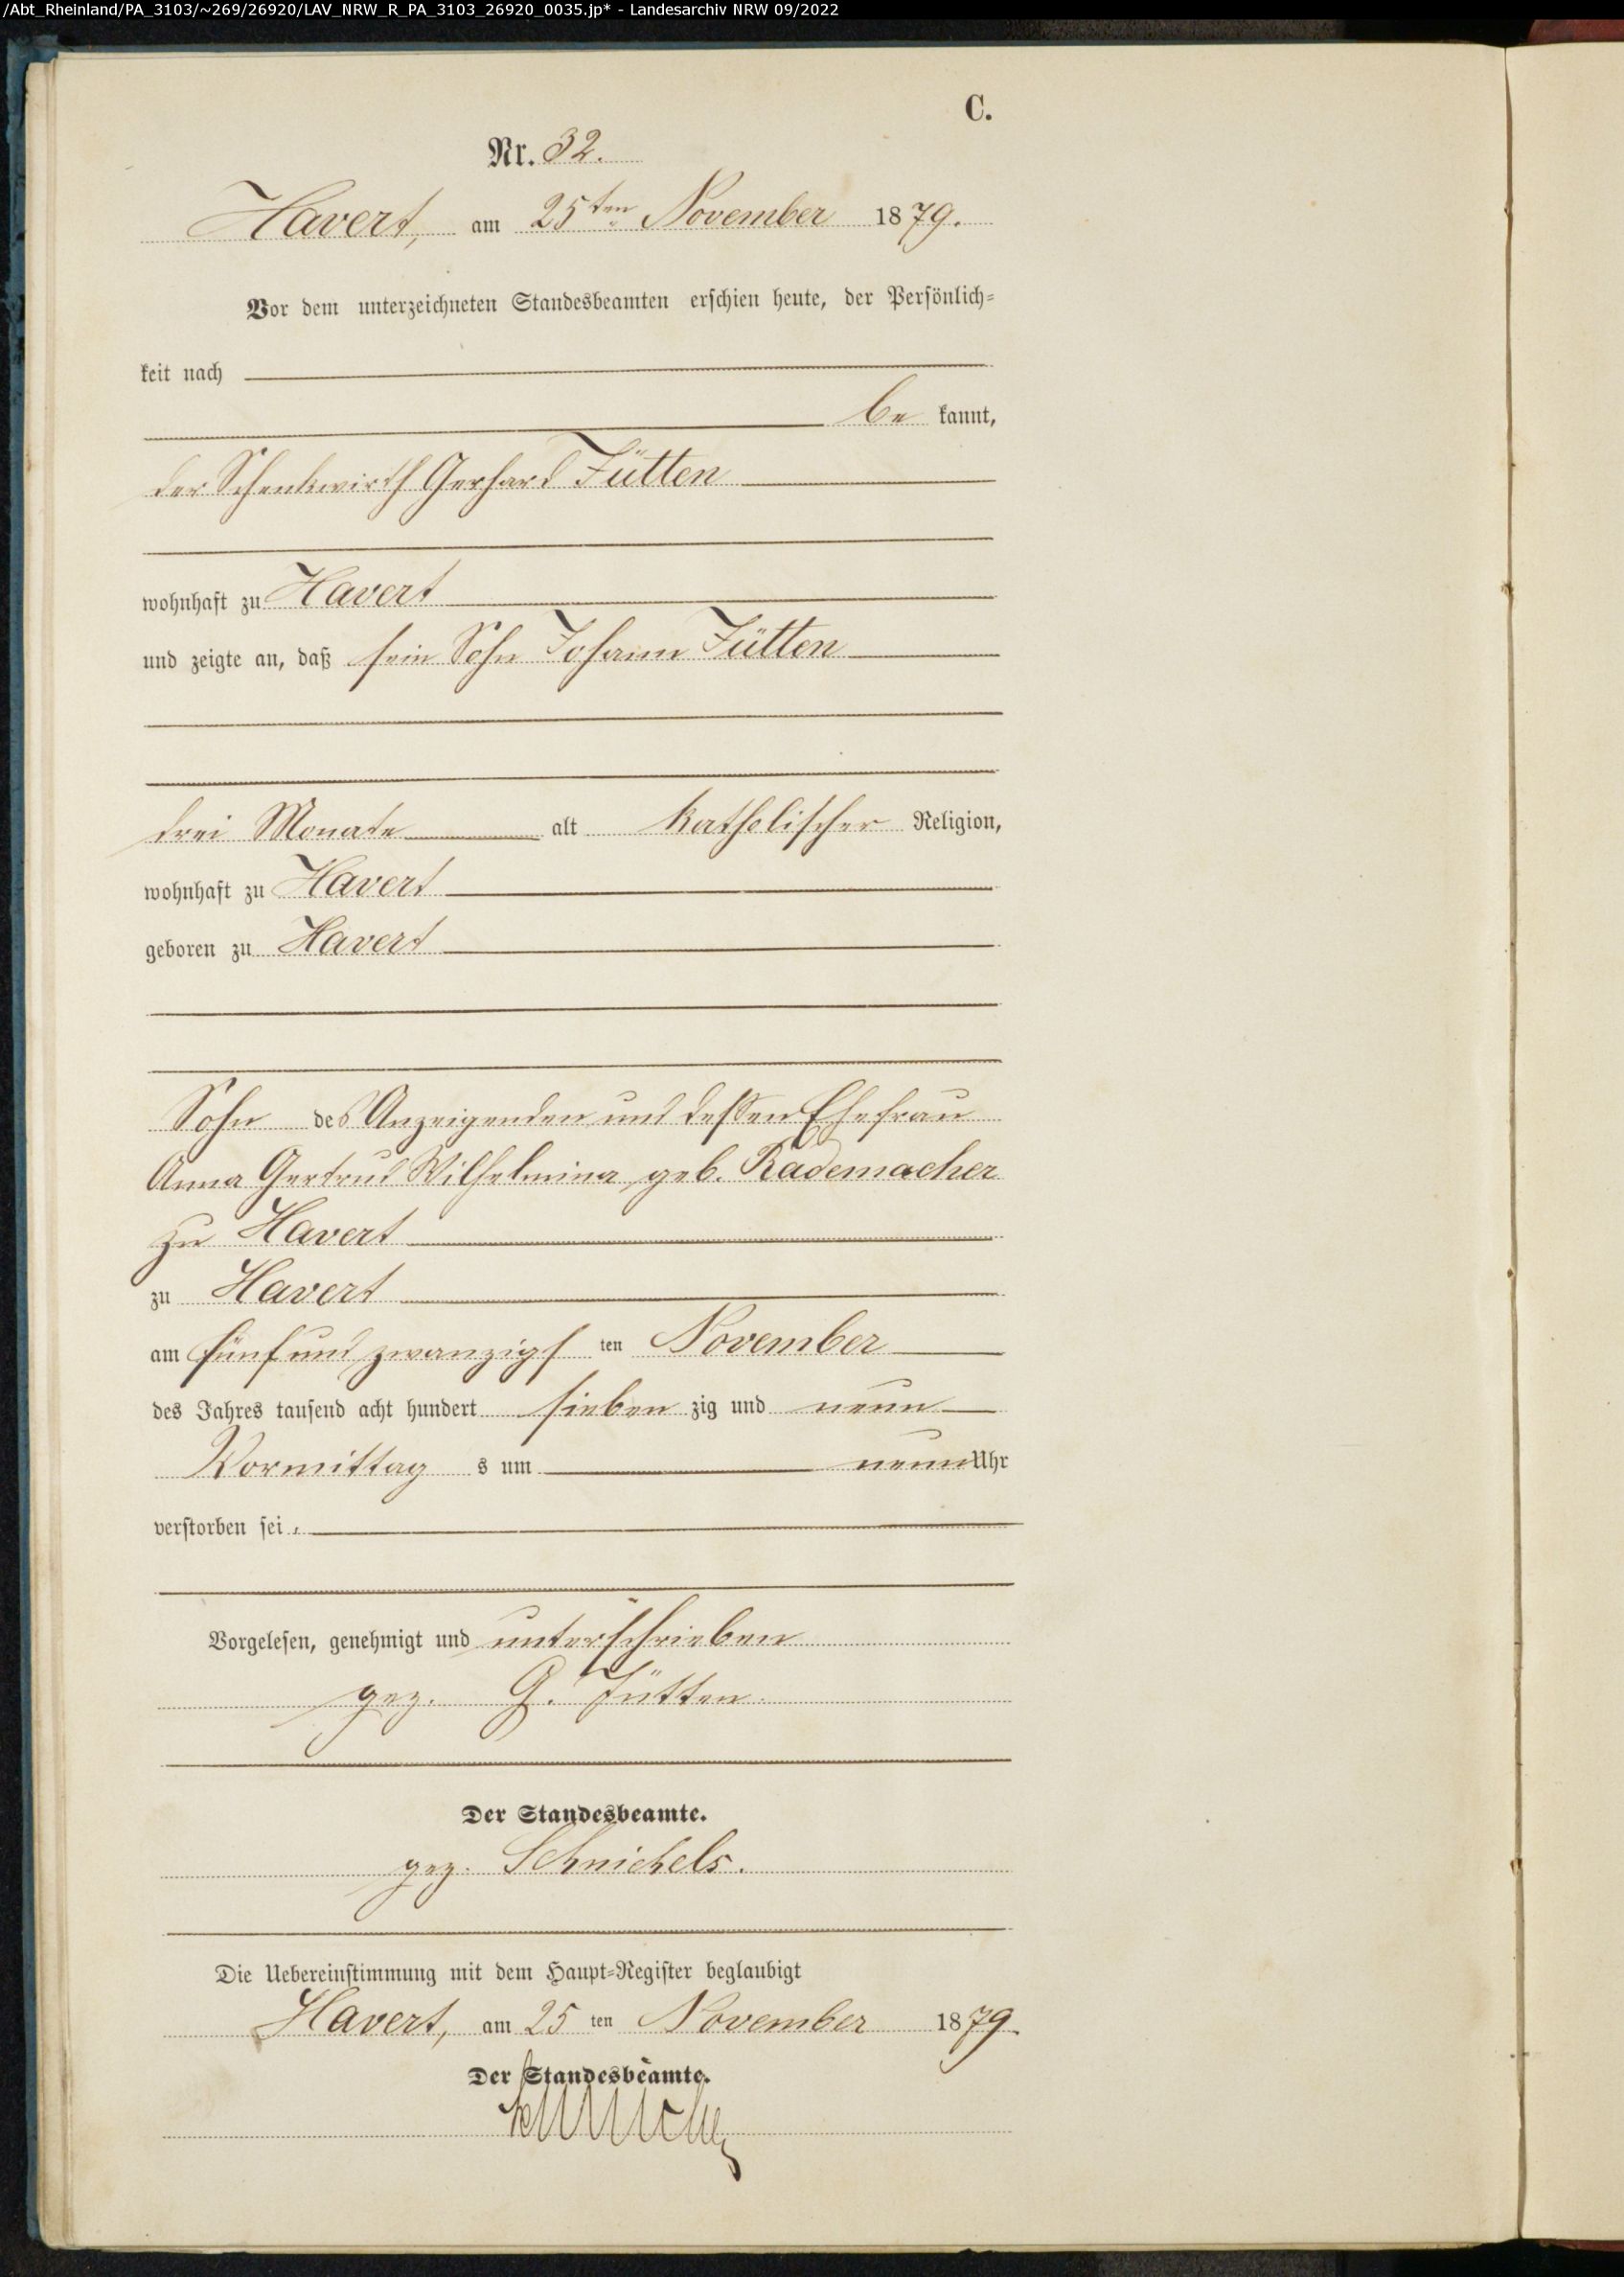 /Abt_Rheinland/PA_3103/~269/26920/LAV_NRW_R_PA_3103_26920_0035.jp* - Landesarchiv NRW 09/2022
C.
Nr. 32.
Havert, am 25ten November 1879.
Vor dem unterzeichneten Standesbeamten erschien heute, der Persönlich-
keit nach
be kannt,
der Schenkwirth Gerhard Jütten
wohnhaft zu Havert
und zeigte an, daß sein Sohn Johann Jütten
drei Monate alt katholischer Religion,
wohnhaft zu Havert
geboren zu Havert
Sohn des Anzeigenden und dessen Ehefrau
Anna Gertrud Wilhelmina geb. Rademacher
zu Havert
zu Havert
am fünf und zwanzigs ten November
des Jahres tausend acht hundert sieben zig und neun
Vormittag s um neun Uhr
verstorben sei.
Vorgelesen, genehmigt und unterschrieben
gez. G. Jütten.
Der Standesbeamte.
gez. Schnichels.
Die Uebereinstimmung mit dem Haupt-Register beglaubigt
Havert, am 25 ten November 1879.
Der Standesbeamte.
Schnichels